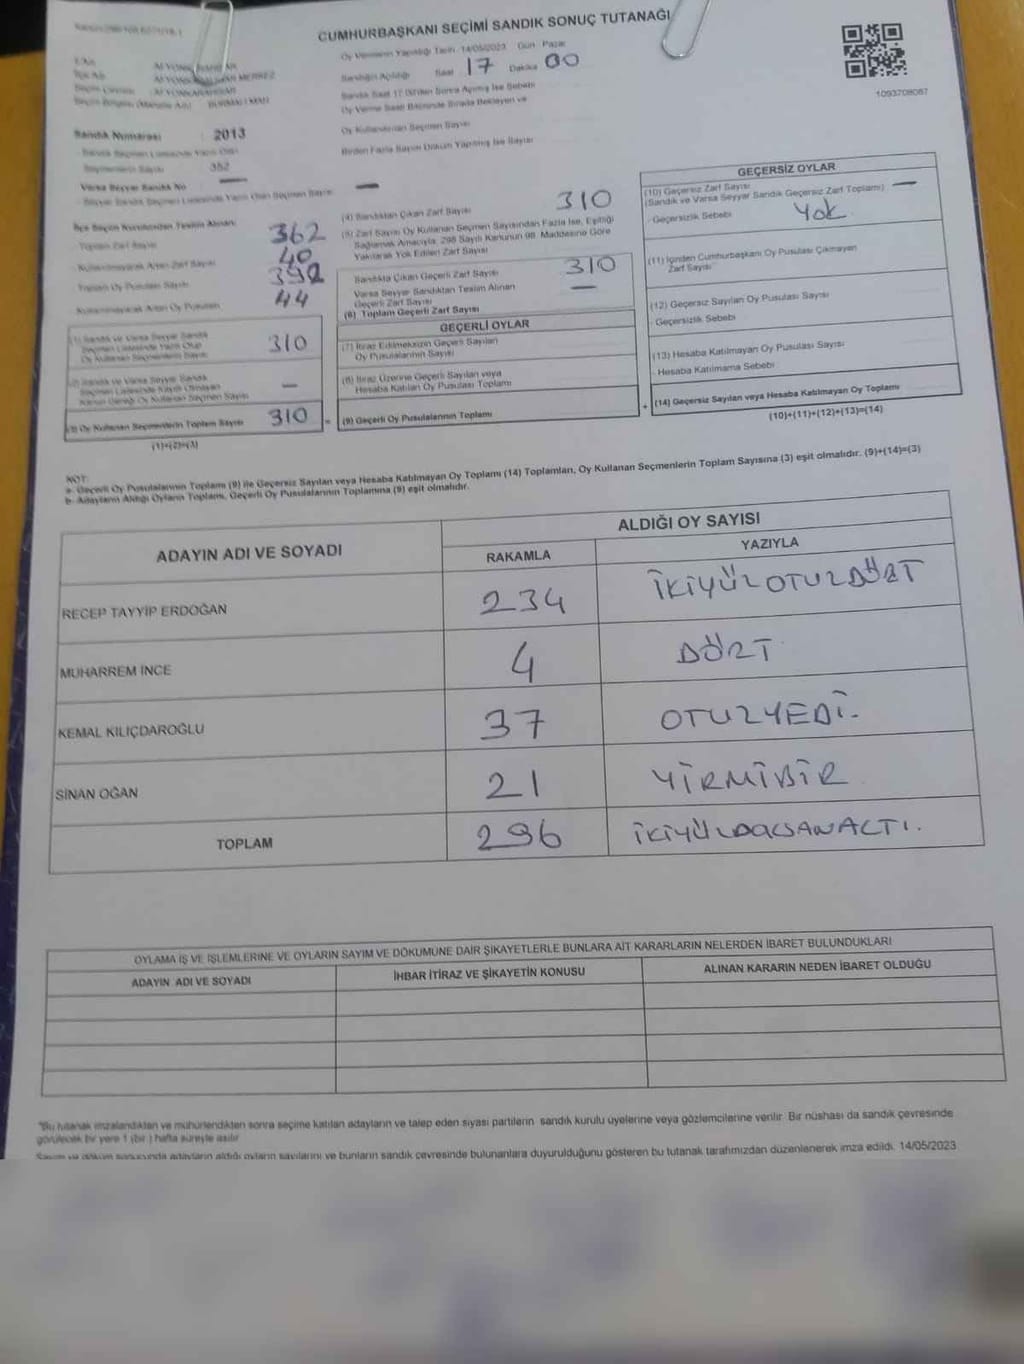 CUMHURBAŞKANI SEÇİMİ SANDIK SONUÇ TUTANAĞI
Oy Vermenin Yapıldığı Tarih 14/05/2023 Gün Pazar
Sandığın Açıldığı Saat 17 Dakika 00
Sandık Saat 17.00'den Sonra Açılmış İse Sebebi
Oy Verme Saati Bitiminde Sırada Bekleyen ve
Oy Kullandırılan Seçmen Sayısı
Birden Fazla Sayım Döküm Yapılmış İse Sayısı
1093708087
AFYONKARAHİSAR MERKEZ
AFYONKARAHİSAR
Sandık Numarası : 2013
Sandık Seçmen Listesinde Yazılı Olan
Seçmenlerin Sayısı 352
Varsa Seyyar Sandık No —
Seyyar Sandık Seçmen Listesinde Yazılı Olan Seçmen Sayısı —
İlçe Seçim Kurulundan Teslim Alınan
Toplam Zarf Sayısı 362
Kullanılmayarak Artan Zarf Sayısı 40
Toplam Oy Pusulası Sayısı 392
Kullanılmayarak Artan Oy Pusulası 44
(1) Sandık ve Varsa Seyyar Sandık
Seçmen Listesinde Yazılı Olup
Oy Kullanan Seçmenlerin Sayısı 310
(2) Sandık ve Varsa Seyyar Sandık
Seçmen Listesinde Kayıtlı Olmayan
Kanun Gereği Oy Kullanan Seçmen Sayısı —
(3) Oy Kullanan Seçmenlerin Toplam Sayısı 310 =
(1)+(2)=(3)
(4) Sandıktan Çıkan Zarf Sayısı 310
(5) Zarf Sayısı Oy Kullanan Seçmen Sayısından Fazla İse, Eşitliği
Sağlamak Amacıyla, 298 Sayılı Kanunun 98. Maddesine Göre
Yakılarak Yok Edilen Zarf Sayısı
Sandıkta Çıkan Geçerli Zarf Sayısı 310
Varsa Seyyar Sandıktan Teslim Alınan
Geçerli Zarf Sayısı —
(6) Toplam Geçerli Zarf Sayısı
GEÇERLİ OYLAR
(7) İtiraz Edilmeksizin Geçerli Sayılan
Oy Pusulalarının Sayısı
(8) İtiraz Üzerine Geçerli Sayılan veya
Hesaba Katılan Oy Pusulası Toplamı
(9) Geçerli Oy Pusulalarının Toplamı +
GEÇERSİZ OYLAR
(10) Geçersiz Zarf Sayısı
(Sandık ve Varsa Seyyar Sandık Geçersiz Zarf Toplamı) —
- Geçersizlik Sebebi Yok
(11) İçinden Cumhurbaşkanı Oy Pusulası Çıkmayan
Zarf Sayısı
(12) Geçersiz Sayılan Oy Pusulası Sayısı
- Geçersizlik Sebebi
(13) Hesaba Katılmayan Oy Pusulası Sayısı
- Hesaba Katılmama Sebebi
(14) Geçersiz Sayılan veya Hesaba Katılmayan Oy Toplamı
(10)+(11)+(12)+(13)=(14)
NOT:
a- Geçerli Oy Pusulalarının Toplamı (9) ile Geçersiz Sayılan veya Hesaba Katılmayan Oy Toplamı (14) Toplamları, Oy Kullanan Seçmenlerin Toplam Sayısına (3) eşit olmalıdır. (9)+(14)=(3)
b- Adayların Aldığı Oyların Toplamı, Geçerli Oy Pusulalarının Toplamına (9) eşit olmalıdır.
ADAYIN ADI VE SOYADI
ALDIĞI OY SAYISI
RAKAMLA YAZIYLA
RECEP TAYYİP ERDOĞAN 234 İKİYÜZOTUZDÖRT
MUHARREM İNCE 4 DÖRT
KEMAL KILIÇDAROĞLU 37 OTUZYEDİ.
SİNAN OĞAN 21 YİRMİBİR
TOPLAM 296 İKİYÜZDOKSANALTI.
OYLAMA İŞ VE İŞLEMLERİNE VE OYLARIN SAYIM VE DÖKÜMÜNE DAİR ŞİKAYETLERLE BUNLARA AİT KARARLARIN NELERDEN İBARET BULUNDUKLARI
ADAYIN ADI VE SOYADI İHBAR İTİRAZ VE ŞİKAYETİN KONUSU ALINAN KARARIN NEDEN İBARET OLDUĞU
"Bu tutanak imzalandıktan ve mühürlendikten sonra seçime katılan adayların ve talep eden siyasi partilerin sandık kurulu üyelerine veya gözlemcilerine verilir. Bir nüshası da sandık çevresinde
görülecek bir yere 1 (bir) hafta süreyle asılır
Sayım ve döküm sonucunda adayların aldığı oyların sayılarını ve bunların sandık çevresinde bulunanlara duyurulduğunu gösteren bu tutanak tarafımızdan düzenlenerek imza edildi. 14/05/2023